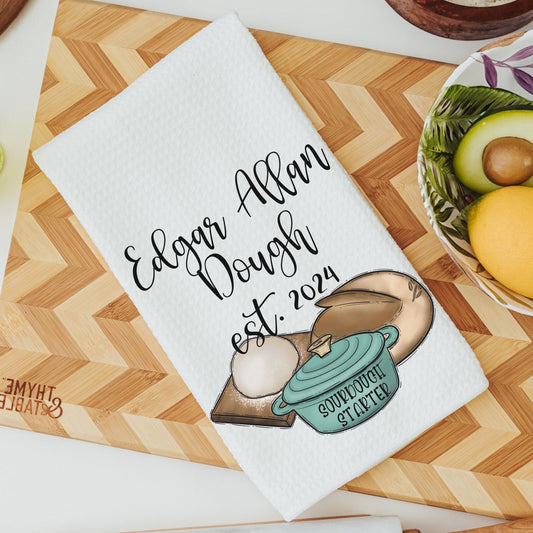 Edgar Allan
Dough
est. 2024
SOURDOUGH
STARTER
THYME
&TABLE